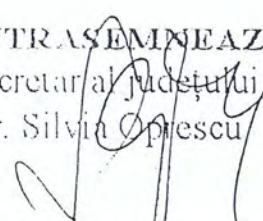 TRASEMNEAZ
cretar al județului
r. Silvia Oprescu